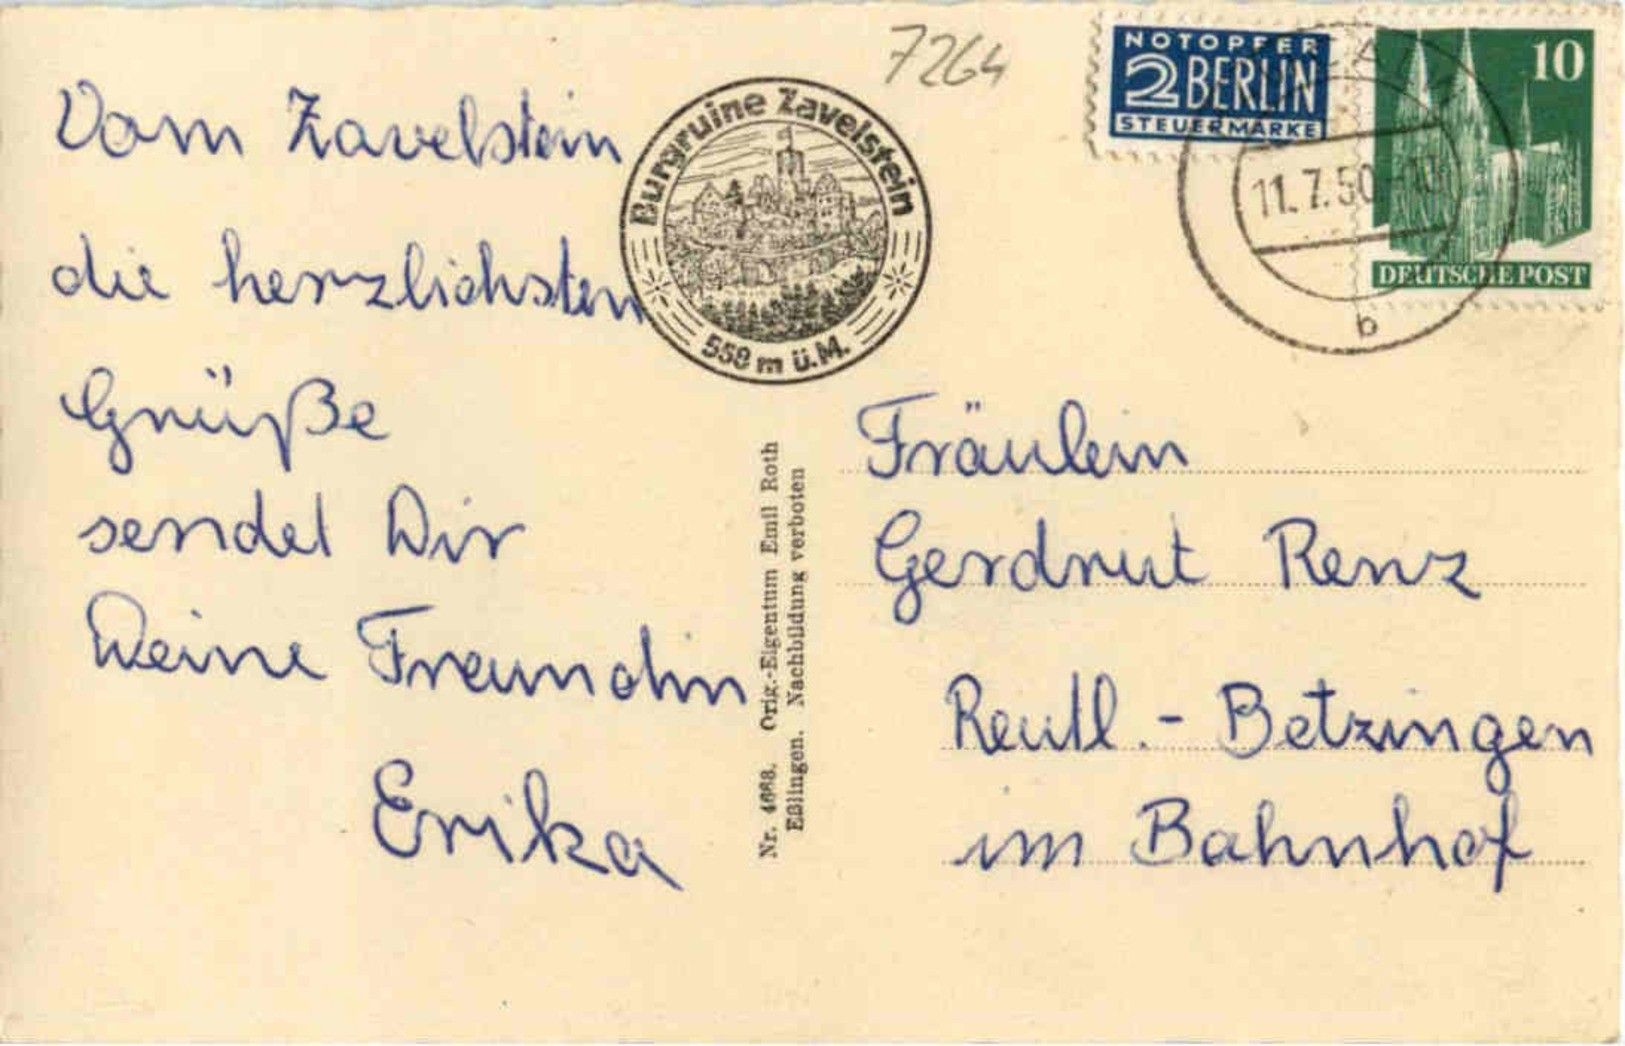 7264
NOTOPFER
2 BERLIN
STEUERMARKE
10
DEUTSCHE POST
11.7.50
b
Burgruine Zavelstein
559 m ü.M.
Vom Zavelstein
die herzlichsten
Grüße
sendet Dir
Deine Freundin
Erika
Nr. 4668. Orig.-Eigentum Emil Roth
Eßlingen. Nachbildung verboten
Fräulein
Gerdrut Renz
Reutl.- Betzingen
im Bahnhof